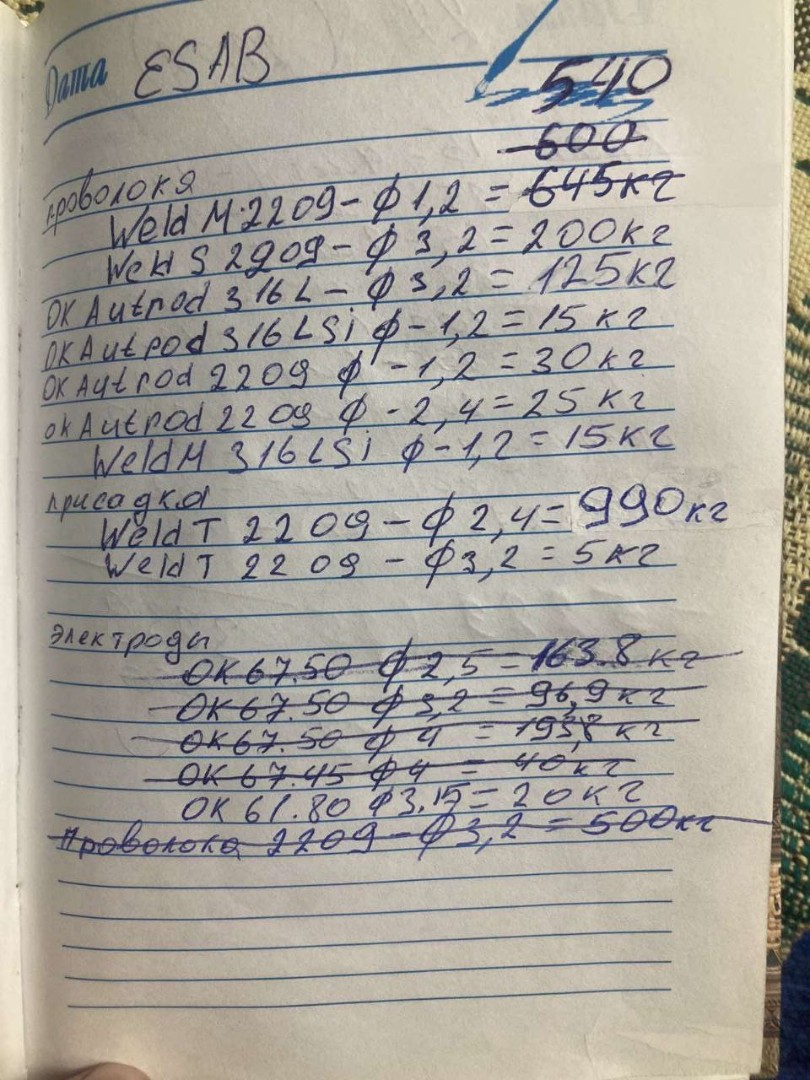 Дата ESAB
540
600
проволока
Weld M 2209 - ф 1,2 = 645кг
Weld S 2209 - ф 3,2 = 200кг
OK Autrod 316L - ф 3,2 = 125кг
OK Autrod 316LSi ф - 1,2 = 15 кг
OK Autrod 2209 ф - 1,2 = 30кг
ok Autrod 2209 ф - 2,4 = 25 кг
Weld M 316LSi ф - 1,2 = 15кг
присадка
Weld T 2209 - ф 2,4 = 990кг
Weld T 2209 - ф 3,2 = 5кг
Электроды
OK 67.50 ф 2,5 = 163.8 кг
OK 67.50 ф 3,2 = 96,9 кг
OK 67.50 ф 4 = 193,8 кг
OK 67.45 ф 4 = 40кг
OK 61.80 ф 3.15 = 20кг
Проволока 2209 - ф 3,2 = 500кг